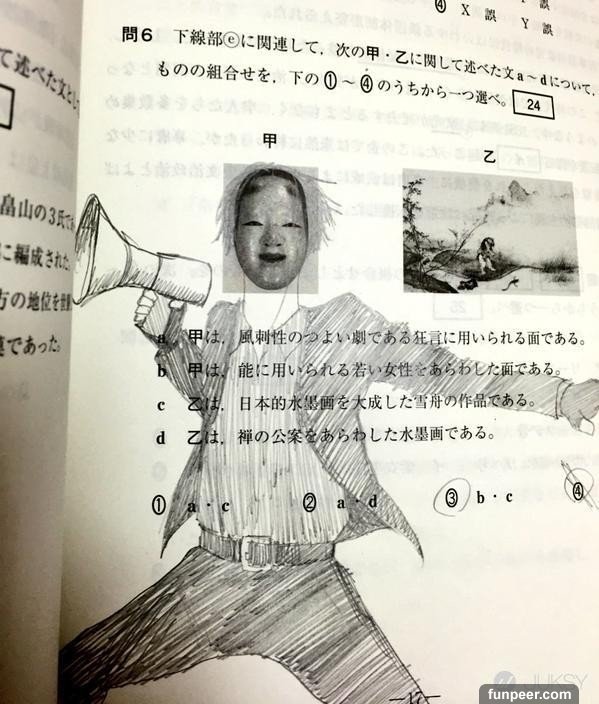 ④ X 誤 Y 誤
問6 下線部ⓔに関連して，次の甲・乙に関して述べた文a～dについて，
ものの組合せを，下の①～④のうちから一つ選べ。 24
て述べた文とし
甲
乙
畠山の3氏で
に編成された
方の地位を世襲
であった。
a 甲は，風刺性のつよい劇である狂言に用いられる面である。
b 甲は，能に用いられる若い女性をあらわした面である。
c 乙は，日本的水墨画を大成した雪舟の作品である。
d 乙は，禅の公案をあらわした水墨画である。
① a・c ② a・d ③ b・c ④
JUKSY
funpeer.com